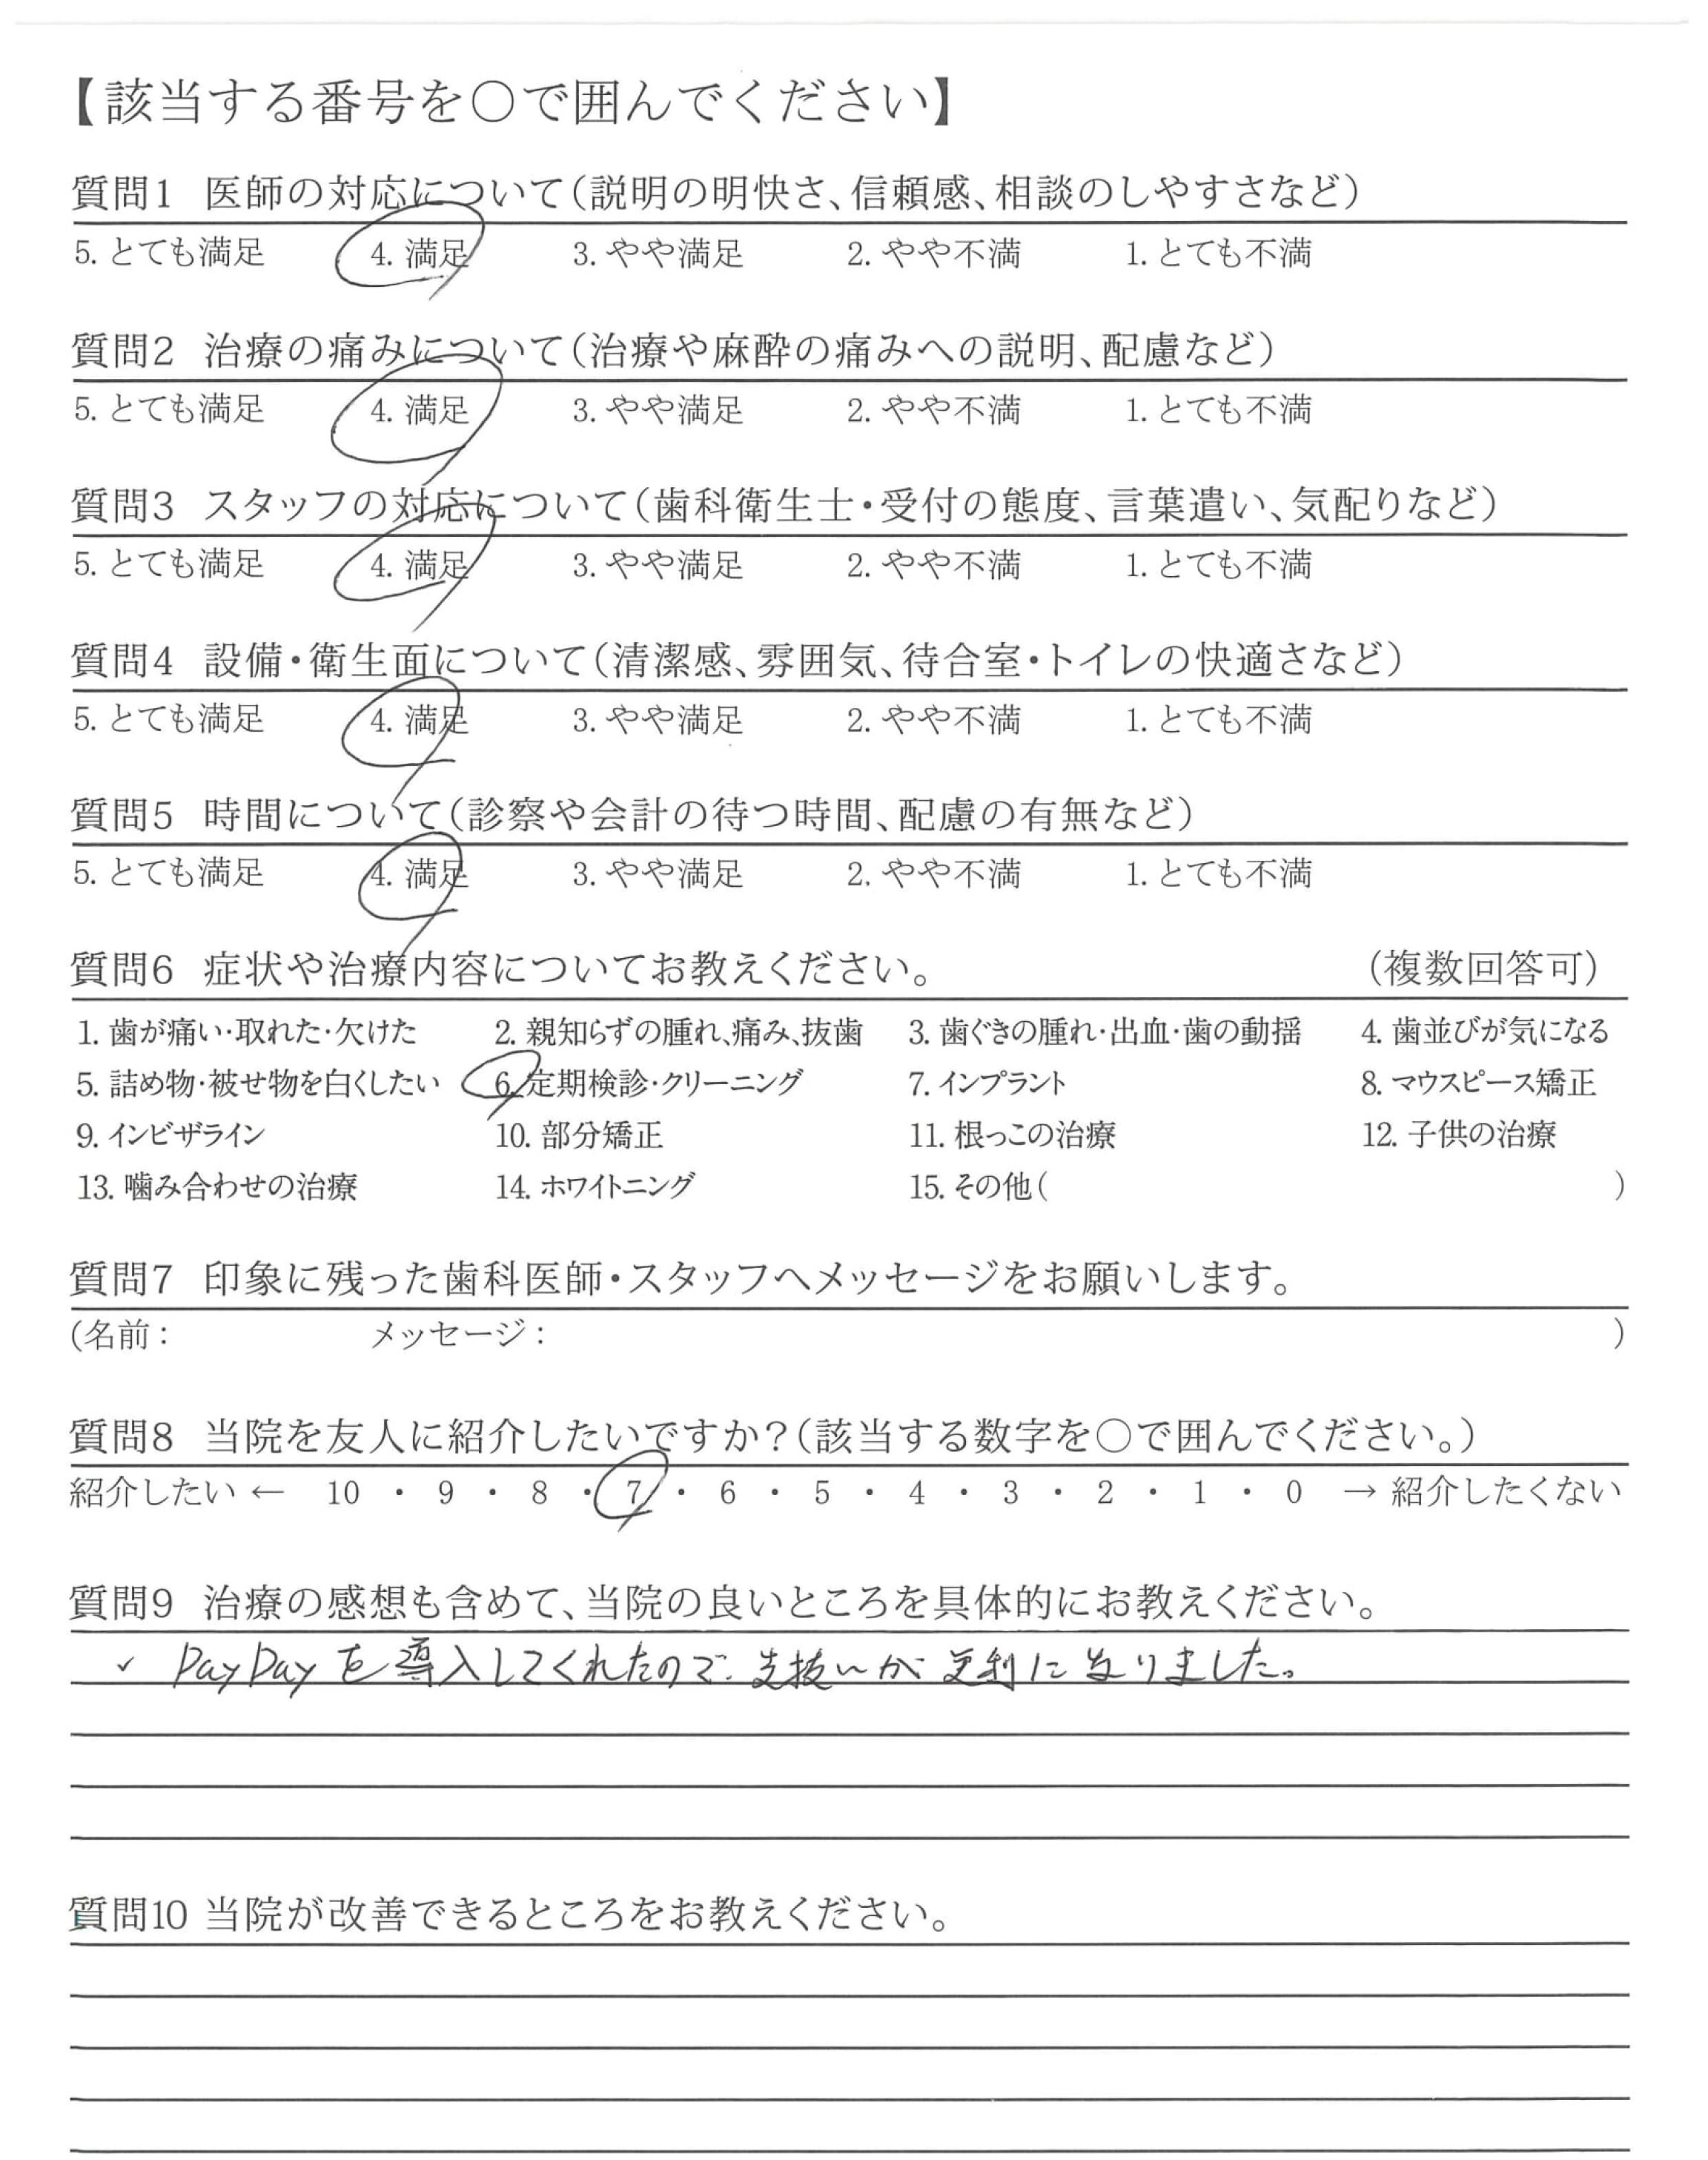 【該当する番号を〇で囲んでください】
質問1 医師の対応について(説明の明快さ、信頼感、相談のしやすさなど)
5. とても満足 4. 満足 3. やや満足 2. やや不満 1. とても不満
質問2 治療の痛みについて(治療や麻酔の痛みへの説明、配慮など)
5. とても満足 4. 満足 3. やや満足 2. やや不満 1. とても不満
質問3 スタッフの対応について(歯科衛生士・受付の態度、言葉遣い、気配りなど)
5. とても満足 4. 満足 3. やや満足 2. やや不満 1. とても不満
質問4 設備・衛生面について(清潔感、雰囲気、待合室・トイレの快適さなど)
5. とても満足 4. 満足 3. やや満足 2. やや不満 1. とても不満
質問5 時間について(診察や会計の待つ時間、配慮の有無など)
5. とても満足 4. 満足 3. やや満足 2. やや不満 1. とても不満
質問6 症状や治療内容についてお教えください。 (複数回答可)
1. 歯が痛い・取れた・欠けた 2. 親知らずの腫れ、痛み、抜歯 3. 歯ぐきの腫れ・出血・歯の動揺 4. 歯並びが気になる
5. 詰め物・被せ物を白くしたい 6. 定期検診・クリーニング 7. インプラント 8. マウスピース矯正
9. インビザライン 10. 部分矯正 11. 根っこの治療 12. 子供の治療
13. 噛み合わせの治療 14. ホワイトニング 15. その他( )
質問7 印象に残った歯科医師・スタッフへメッセージをお願いします。
(名前: メッセージ: )
質問8 当院を友人に紹介したいですか?(該当する数字を〇で囲んでください。)
紹介したい ← 10 ・ 9 ・ 8 ・ 7 ・ 6 ・ 5 ・ 4 ・ 3 ・ 2 ・ 1 ・ 0 → 紹介したくない
質問9 治療の感想も含めて、当院の良いところを具体的にお教えください。
✓ PayPayを導入してくれたので、支払いが便利になりました。
質問10 当院が改善できるところをお教えください。